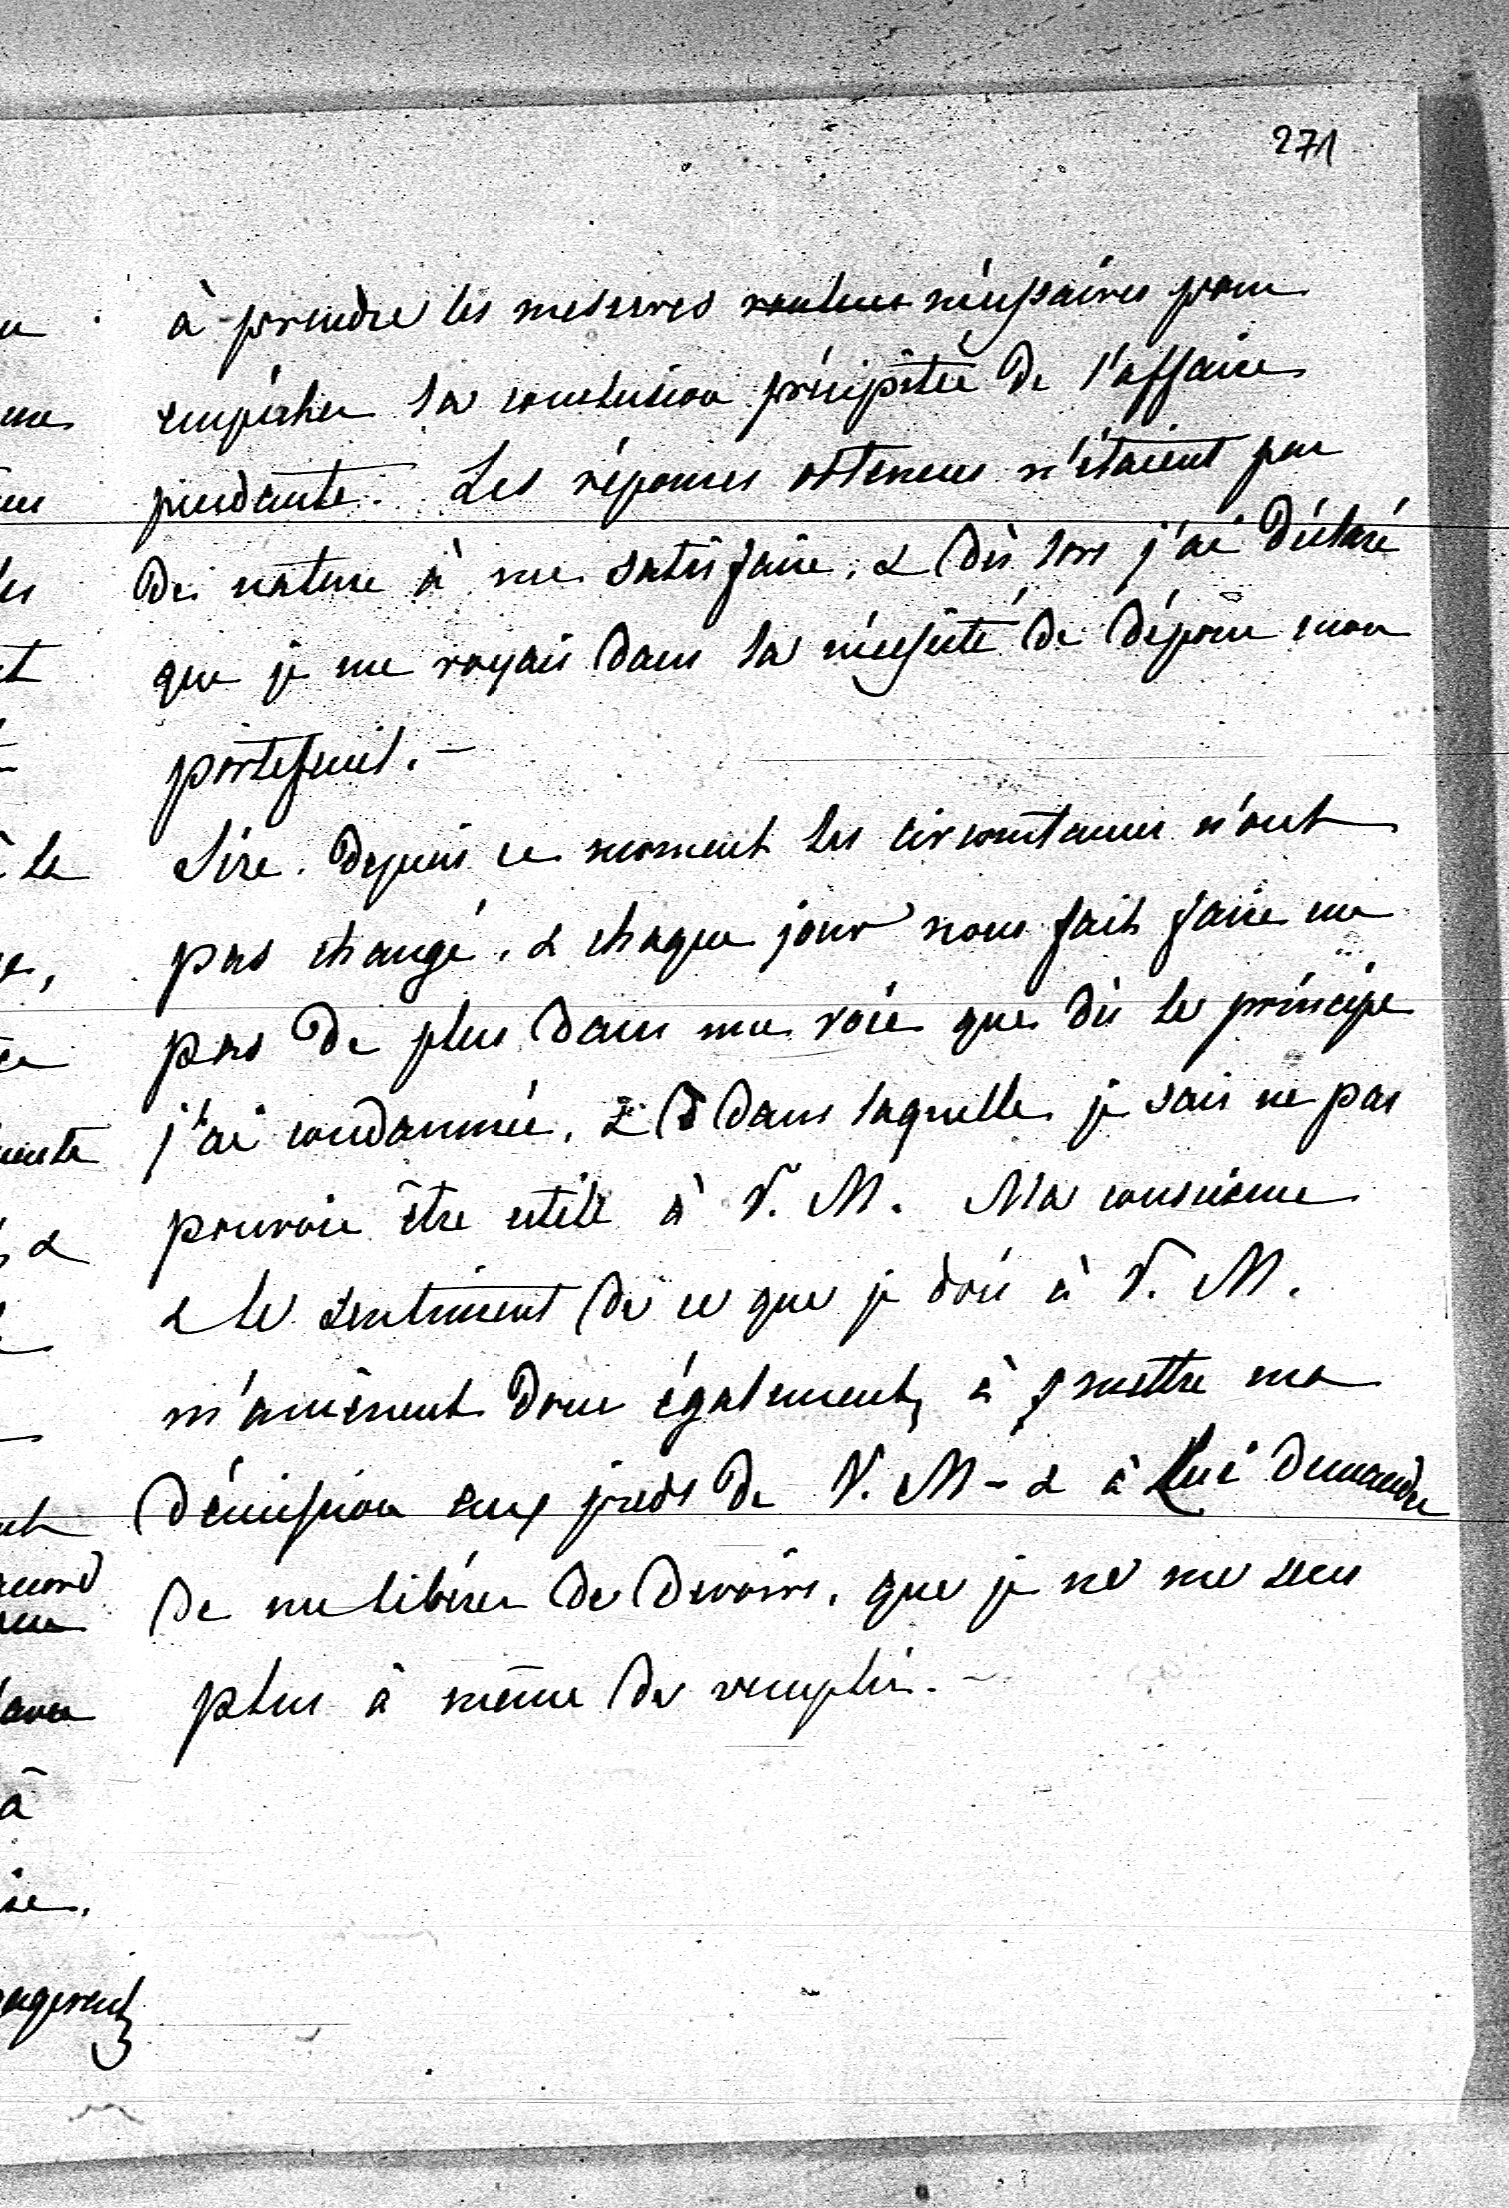 271
à prendre les mesures ~~voulues~~ nécessaires pour
empêcher la conclusion précipitée de l'affaire
pendante. Les réponses obtenues n'étaient pas
de nature à me satisfaire, & dès lors j'ai déclaré
que je me voyais dans la nécessité de déposer mon
portefeuil. -
Sire. Depuis ce moment les circonstances n'ont
pas changé, & chaque jour nous fait faire un
pas de plus dans une voie que dès le principe
j'ai condamnée, & dans laquelle je sais ne pas
pouvoir être utile à V. M. Ma conscience
& le sentiment de ce que je dois à V. M.
m'amènent donc également, à mettre ma
démission aux pieds de V. M - & à Lui demander
de me libérer de devoirs, que je ne me sens
plus à même de remplir. -